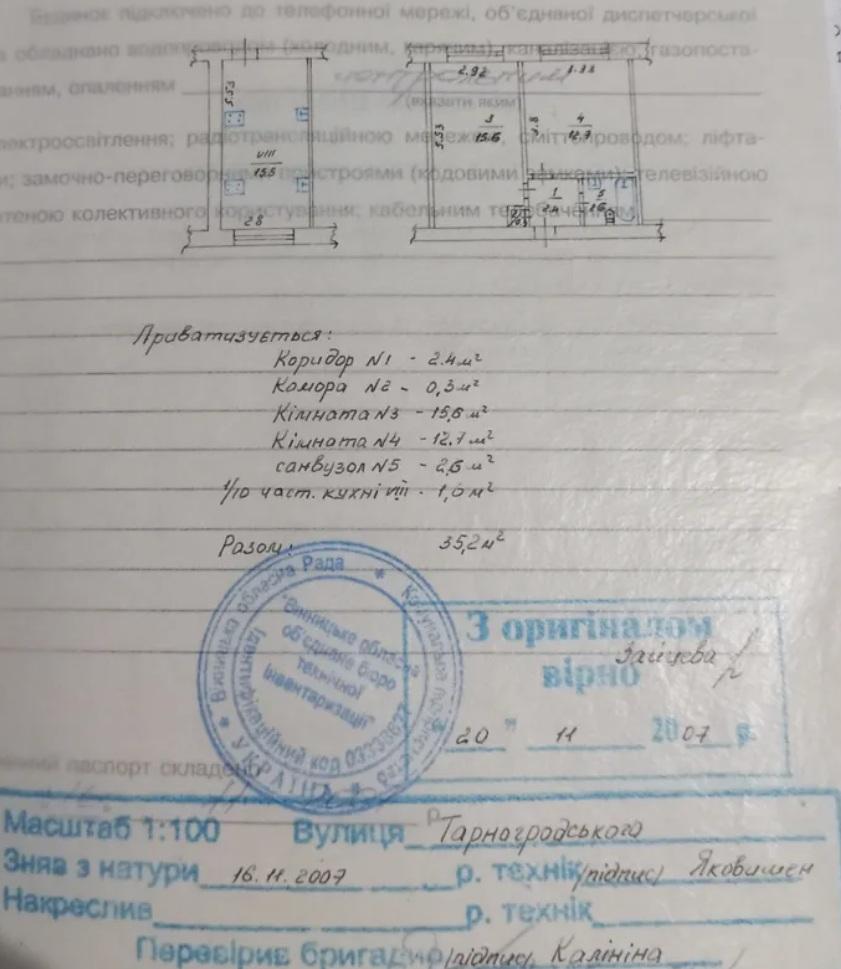 Будинок підключено до телефонної мережі, об'єднаної диспетчерської
обладнано водопроводом (холодним, гарячим), каналізацією, газопоста-
чанням, опаленням центральним
(вказати яким)
електроосвітлення; радіотрансляційною мережею, сміттєпроводом; ліфта-
ми; замочно-переговорними пристроями (кодовими замками); телевізійною
антеною колективного користування; кабельним телебаченням
5.53
VIII
15.5
2.8
2.92
5.53
3
15.6
3.8
4
12.7
1
2.4
5
2
0.3
Приватизується:
Коридор N1 - 2.4 м²
Комора N2 - 0,3 м²
Кімната N3 - 15,6 м²
Кімната N4 - 12.7 м²
санвузол N5 - 2,6 м²
1/10 част. кухні VIII - 1,6 м²
Разом: 35,2 м²
Вінницька обласна Рада * Комунальне підприємство * УКРАЇНА *
Ідентифікаційний код
"Вінницьке обласне
об'єднане бюро
технічної
інвентаризації"
З оригіналом
вірно Зайцева
"20" 11 2007 р.
паспорт складено
Масштаб 1:100 Вулиця Тарногродського
Зняв з натури 16.11.2007 р. технік /підпис/ Яковишен
Накреслив р. технік
Перевірив бригадир /підпис/ Калініна